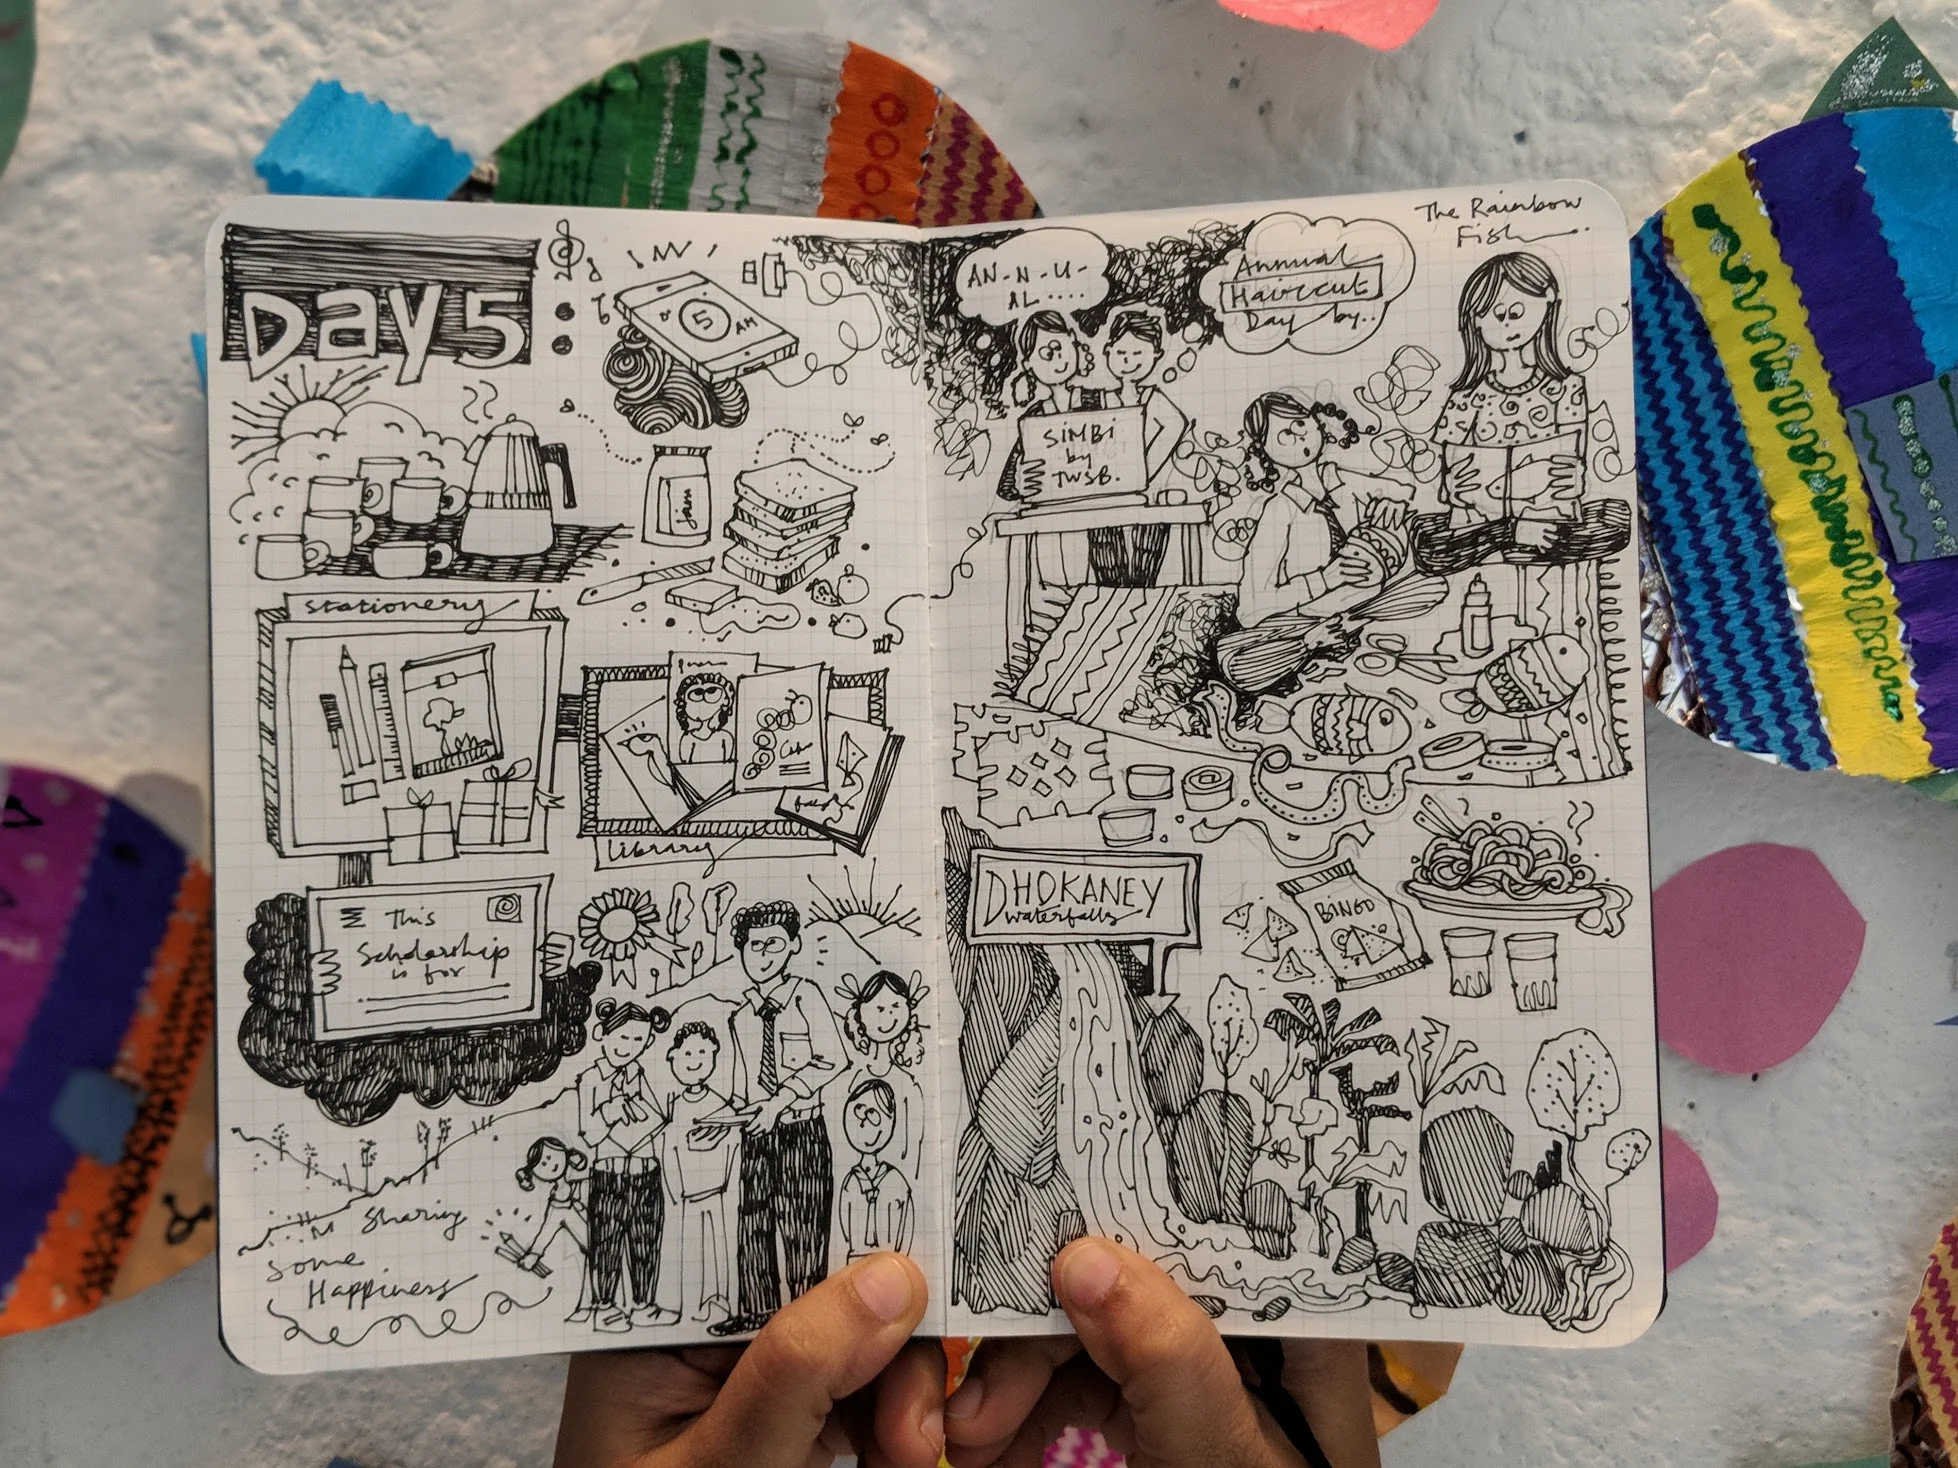 Day 5
5 AM
Jam
Stationery
Library
This
Scholarship
is for
Sharing
some
Happiness
AN-N-U-
AL....
Annual
Haircut
Day by..
The Rainbow
Fish
SIMBI
by
TWSB.
DHOKANEY
waterfalls
BINGO